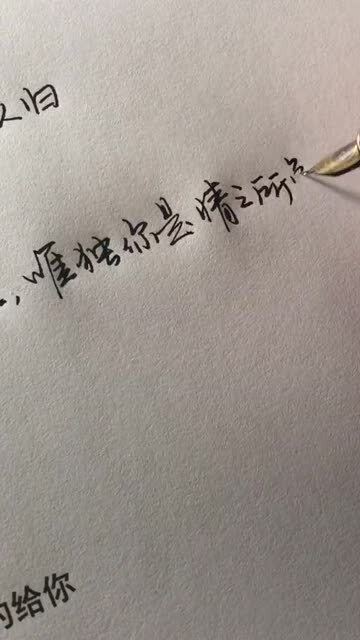 归
唯独你是情之所
的给你